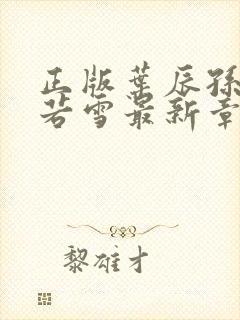 正版葉辰孫
若雪最新章
黎雄才